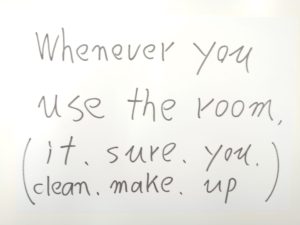 Whenever you
use the room,
(it. sure. you.
clean. make. up)